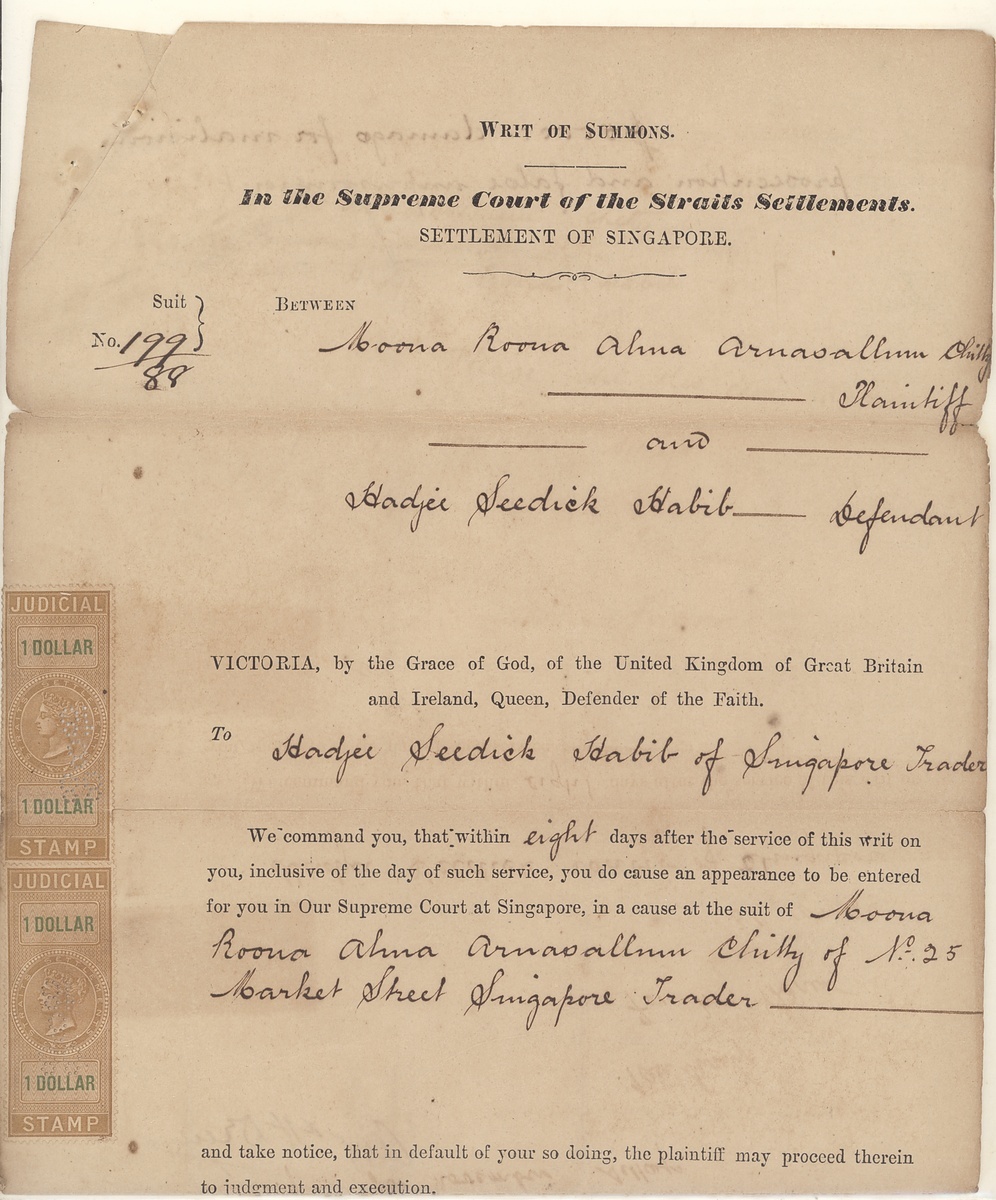 WRIT OF SUMMONS.
In the Supreme Court of the Straits Settlements.
SETTLEMENT OF SINGAPORE.
Suit
No. 199/88
BETWEEN
Moona Roona Ahna Arnasallum Chitty
Plaintiff
and
Hadjee Seedick Habib Defendant
JUDICIAL
1 DOLLAR
1 DOLLAR
STAMP
JUDICIAL
1 DOLLAR
1 DOLLAR
STAMP
VICTORIA, by the Grace of God, of the United Kingdom of Great Britain
and Ireland, Queen, Defender of the Faith.
To Hadjee Seedick Habib of Singapore Trader
We command you, that within eight days after the service of this writ on
you, inclusive of the day of such service, you do cause an appearance to be entered
for you in Our Supreme Court at Singapore, in a cause at the suit of Moona
Roona Ahna Arnasallum Chitty of No. 25
Market Street Singapore Trader
and take notice, that in default of your so doing, the plaintiff may proceed therein
to judgment and execution.